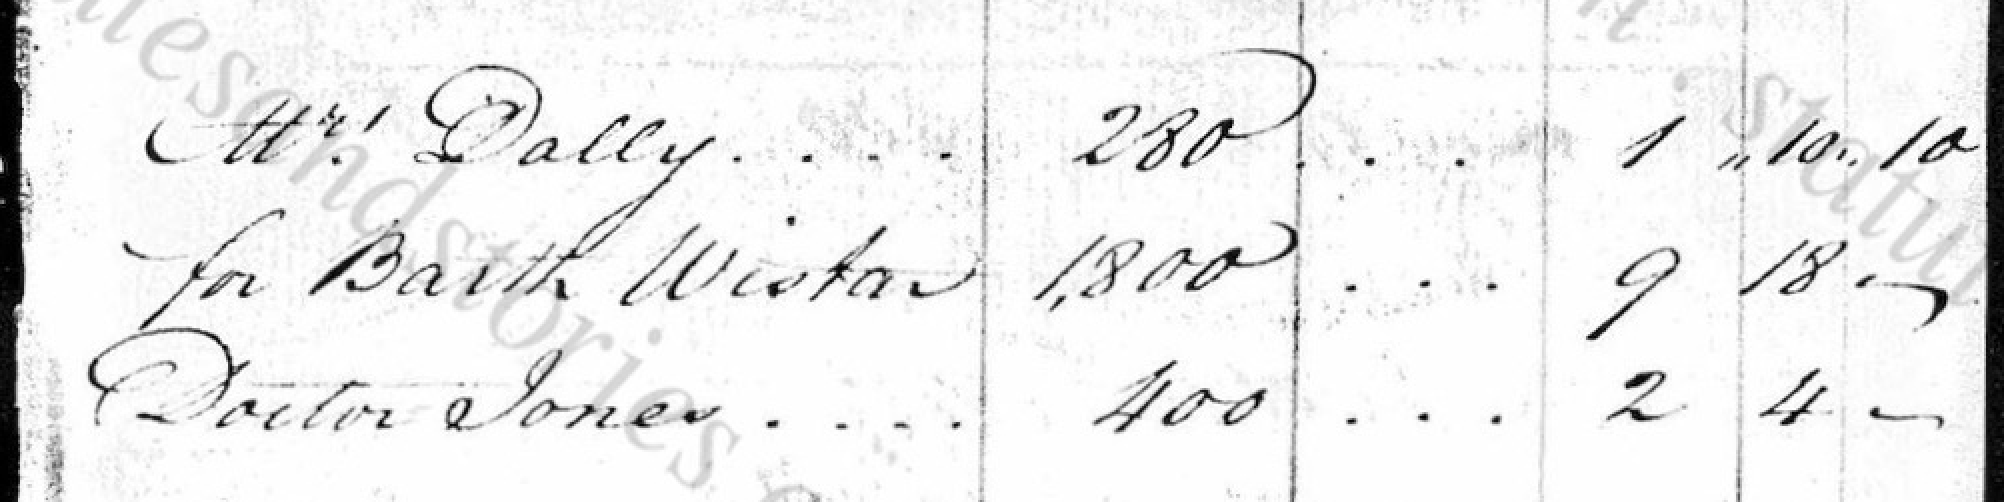 Mrs. Dally.... 280 ... 1 „ 10 „ 10
for Barth Wistar 1,800 ... 9 18 -
Doctor Jones.... 400 ... 2 4 -